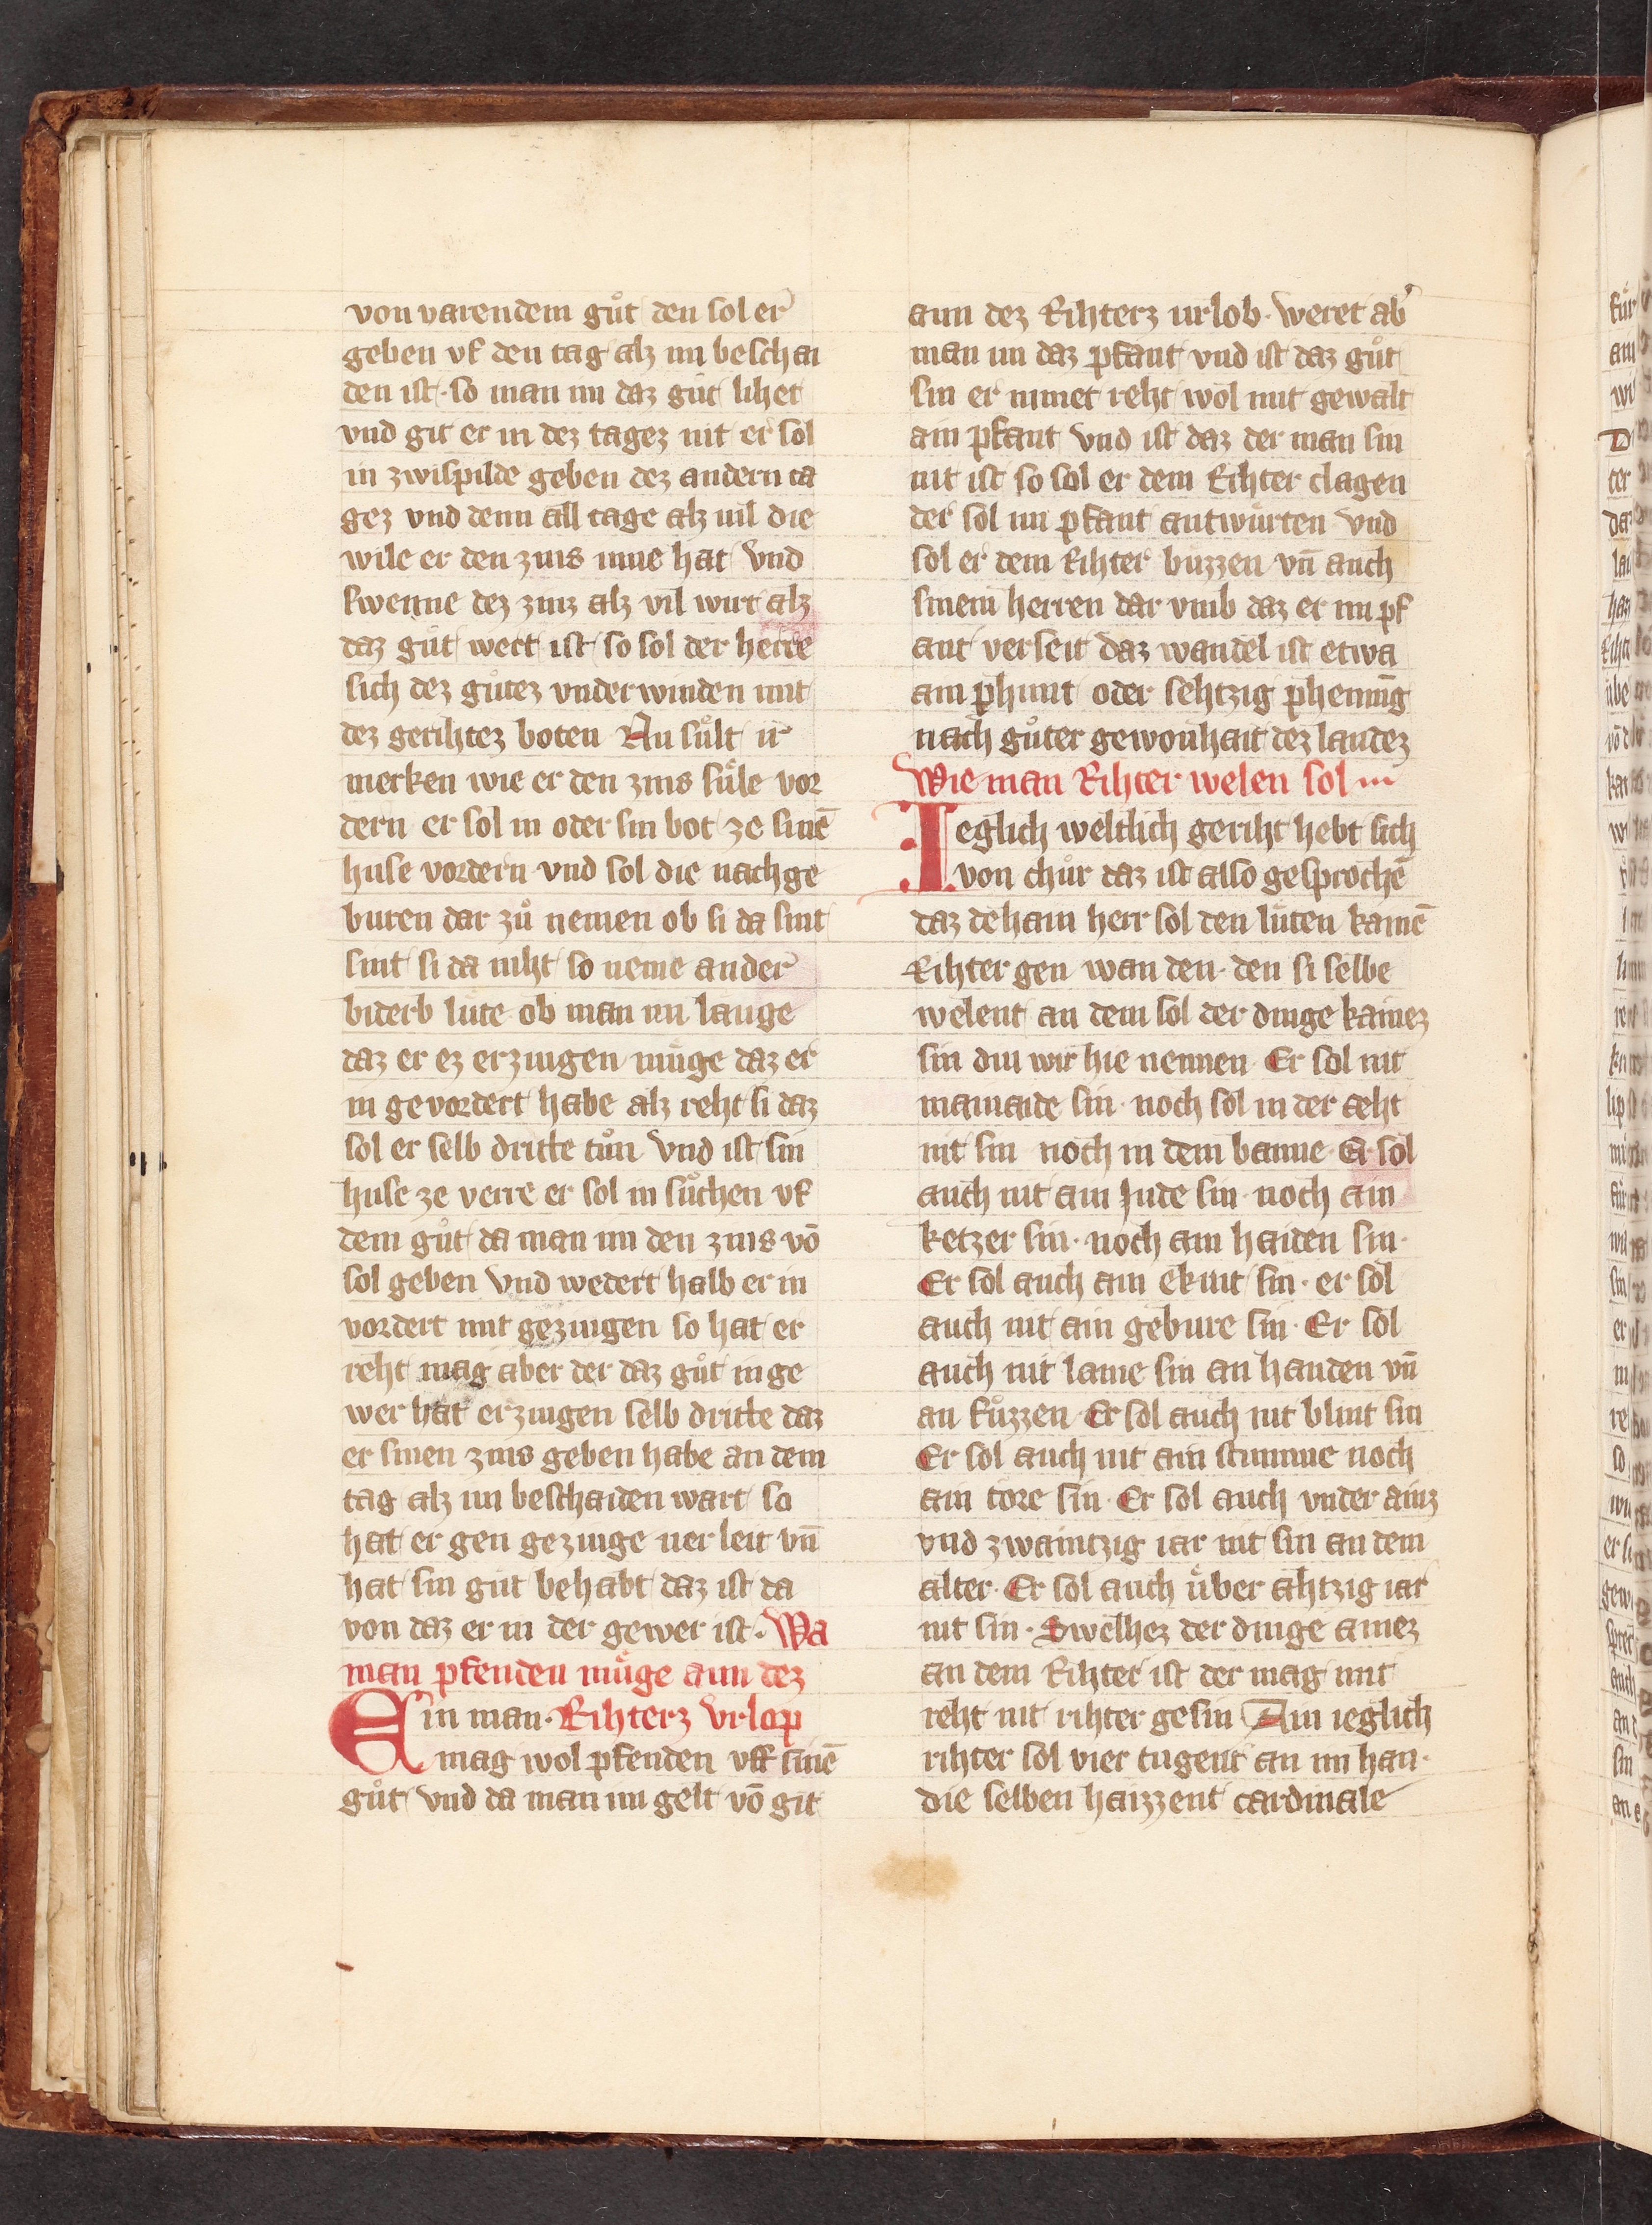 von varendem guͦt den sol er
geben vf den tag alz im beschai
den ist· so man im daz guͦt lihet
vnd git er in dez tagez nit er sol
in zwispilde geben dez andern ta
gez vnd denn all tage alz uil die
wile er den zins inne hat Vnd
swenne dez zinz alz vil wirt alz
daz guͦt wert ist so sol der herre
sich dez guͦtez vnderwinden mit
dez gerihtez boten Nu suͤlt ir
merken wie er den zins suͤle vor
dern er sol in oder sin bot ze sinē
huse vordern vnd sol die nachge
buren dar zuͦ nemen ob si da sint
sint si da niht so neme ander
biderb lute ob man im lauge
daz er ez erzingen muͤge daz er
in gevordert habe alz reht si daz
sol er selb dritte tuͦn Vnd ist sin
huse ze verre er sol in suͦchen vf
dem guͦt da man im den zins võ
sol geben Vnd wedert halb er in
vordert mit gezingen so hat er
reht mag aber der daz guͦt in ge
wer hat erzingen selb dritte daz
er sinen zins geben habe an dem
tag alz im beschaiden wart so
hat er gen gezinge uerleit vn̄
hat sin guͦt behabt daz ist da
von daz er in der gewer ist· Wa
man pfenden muͤge aun dez
Ein man· Rihterz Vrlop
mag wol pfenden vff sinē
guͦt Vnd da man im gelt võ git
aun dez Rihterz urlob· weret ab'
man im daz pfant vnd ist daz guͦt
sin er nimet reht wol mit gewalt
ain pfant Vnd ist daz der man sin
nit ist so sol er dem Rihter clagen
der sol im pfant antwuͤrten Vnd
sol er dem Rihter buzzen vn̄ auch
sinem herren dar vmb daz er im pf
ant verseit daz wandel ist etwa
ain phunt oder sehtzig phennīg
nach guͦter gewonhait dez landez
Wie man Rihter welen sol
Ieglich weltlich geriht hebt sich
von chuͤr daz ist also gesprochē
daz dehain herr sol den luͤten kainē
Rihter gen wan den· den si selbe
welent an dem sol der dinge kainez
sin diu wir hie nennen Er sol nit
mainaide sin· noch sol in der aeht
nit sin noch in dem banne· Er sol
auch nit ain Jude sin· noch ain
ketzer sin· noch ain haiden sin·
Er sol auch ain ekint sin· er sol
auch nit ain gebure sin· Er sol
auch nit lame sin an handen vn̄
an fuͤzzen· Er sol auch nit blint sin
Er sol auch nit ain stumme noch
ain tore sin· Er sol auch vnder ainz
vnd zwaintzig iar nit sin an dem
alter· Er sol auch uͤber ahtzig iar
nit sin· Swelhez der dinge ainez
an dem Rihter ist der mag mit
reht nit rihter gesin Ain ieglich
rihter sol vier tugent an im han·
die selben haizzent cardinale